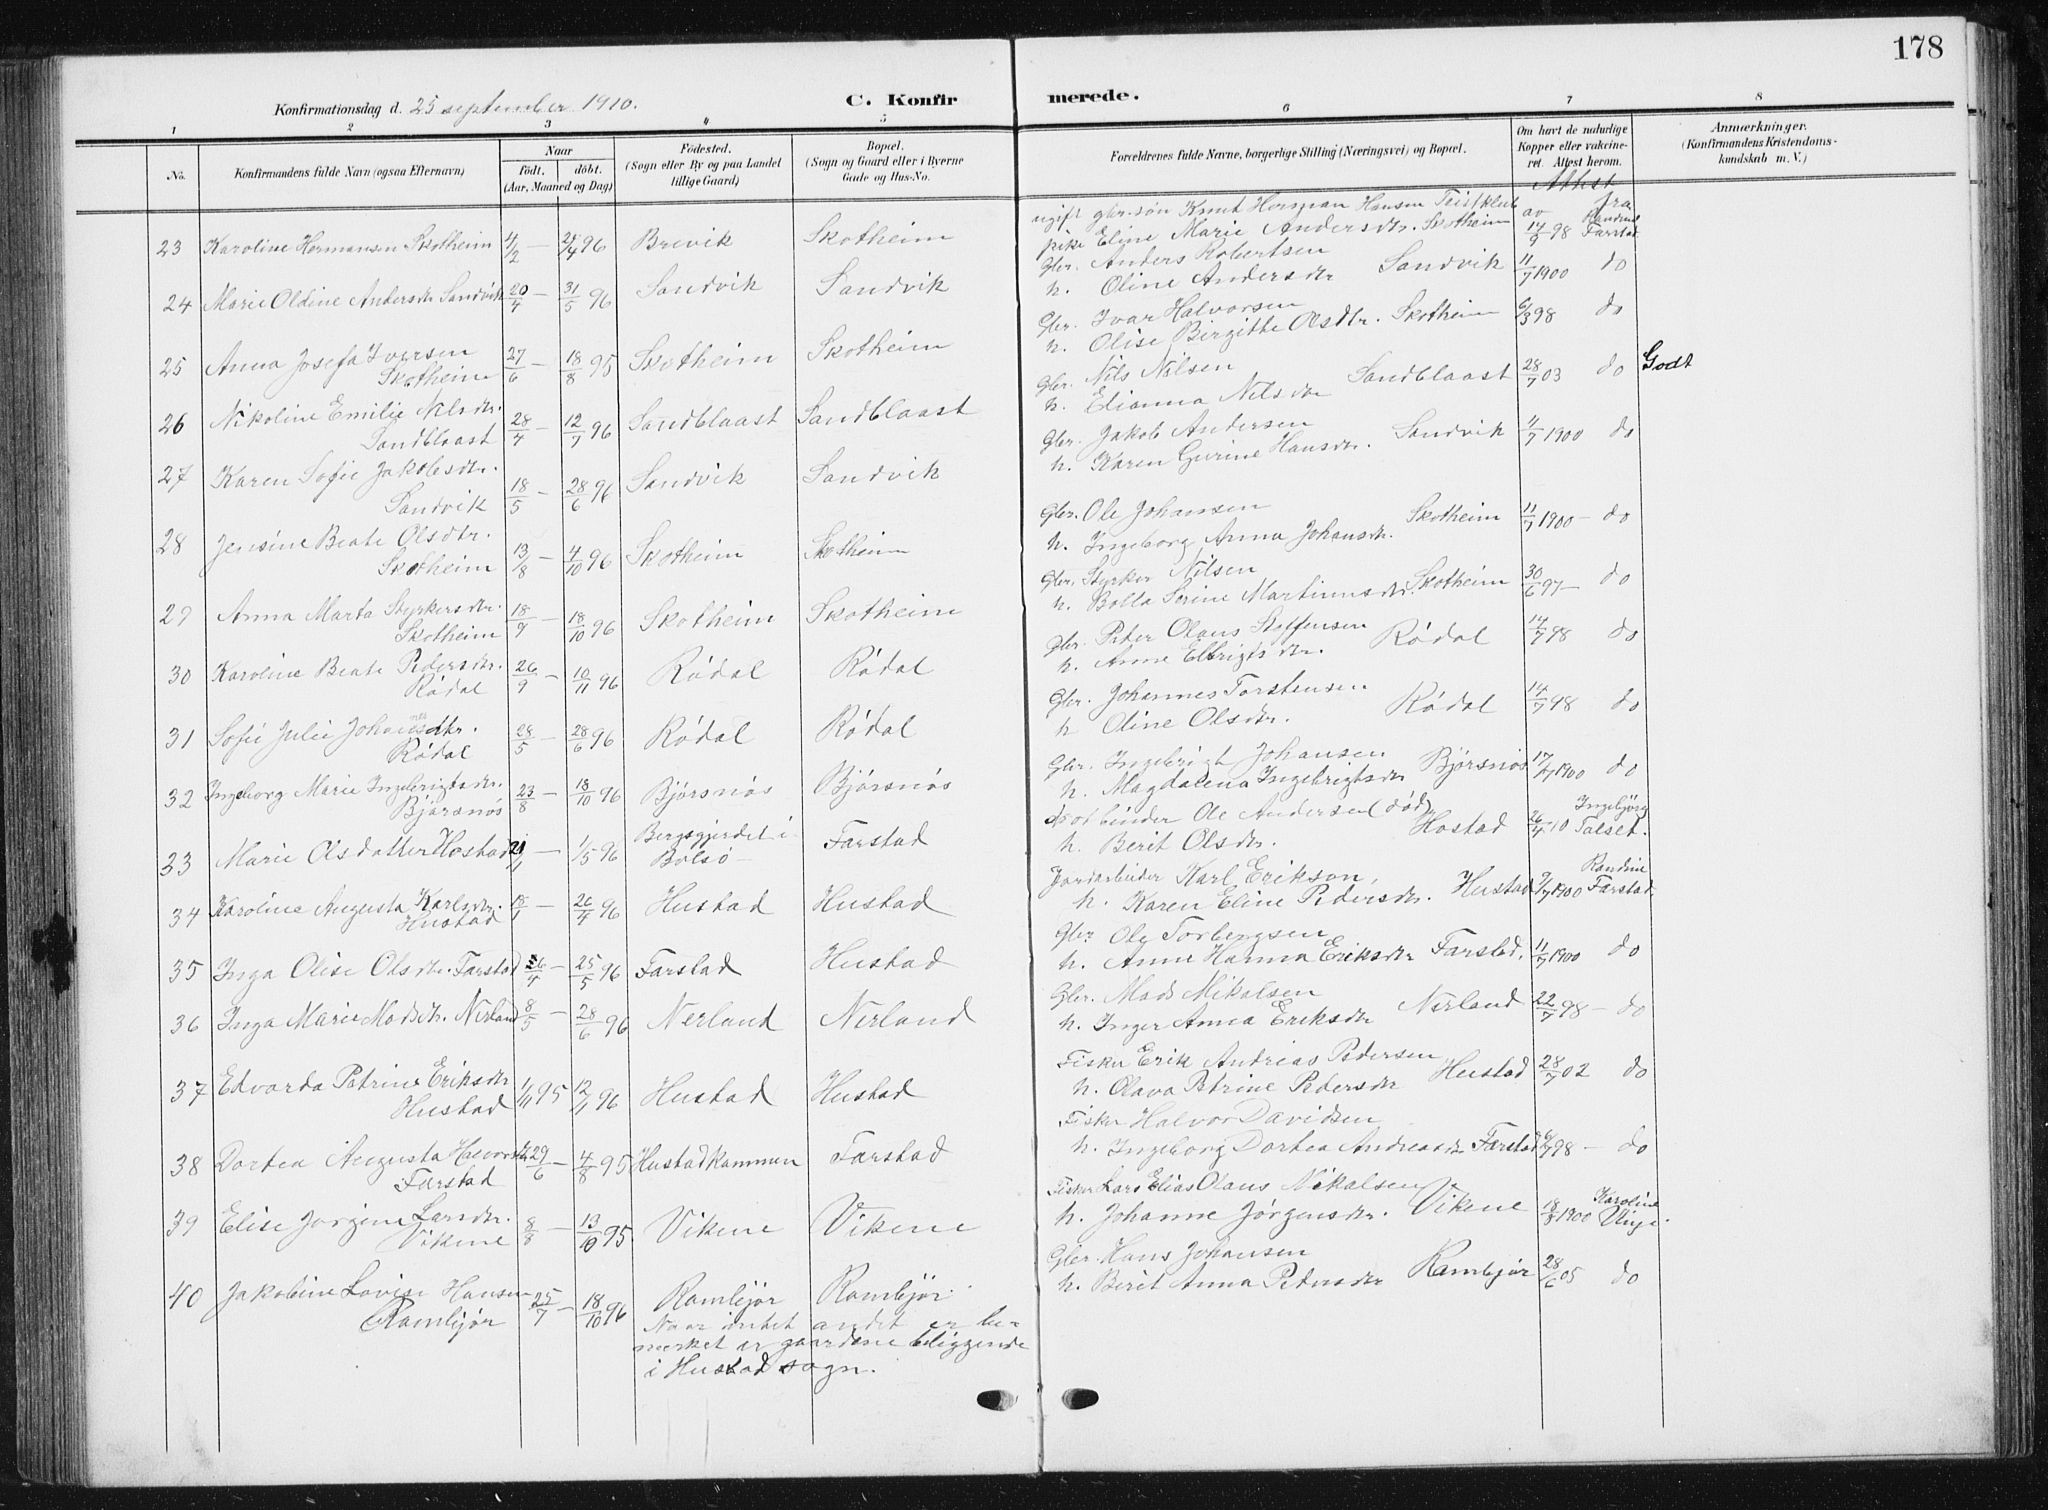 178
Konfirmationsdag d. 25 september 1910.
C. Konfirmerede.
1 2 3 4 5 6 7 8
No.
Konfirmandens fulde Navn (ogsaa Efternavn)
Naar
födt. döbt.
(Aar, Maaned og Dag)
Födested.
(Sogn eller By og paa Landet
tillige Gaard)
Bopæl.
(Sogn og Gaard eller i Byerne
Gade og Hus-No.
Forældrenes fulde Navne, borgerlige Stilling (Næringsvei) og Bopæl.
Om havt de naturlige
Kopper eller vakcine-
ret. Attest herom.
Anmærkninger.
(Konfirmandens Kristendoms-
kundskab m. V.)
Athst
av fra
23 Karoline Hermansen Skotheim 4/2 — 26/4 96 Brevik Skotheim
ugift gbr.søn Knut Herman Hansen Teistklub
pike Eline Marie Andersdtr. Skotheim 14/9 98 Randine Farstad
24 Marie Oldine Andersdtr Sandvik 20/4 — 31/5 96 Sandvik Sandvik
Gbr. Anders Robertsen
h. Oline Andersdtr Sandvik 11/7 1900 do
25 Anna Josefa Iversen
Skotheim 27/6 — 18/8 95 Skotheim Skotheim
Gbr. Ivar Halvorsen
h. Olise Birgitte Olsdtr. Skotheim 6/3 98 do
26 Nikoline Emilie Nilsdtr.
Sandblaast 28/4 — 12/7 96 Sandblaast Sandblaast
Gbr. Nils Nilsen
h. Elianna Nilsdtr Sandblaast 28/7 03 do Godt
27 Karen Sofie Jakobsdtr.
Sandvik 18/5 — 28/6 96 Sandvik Sandvik
Gbr. Jakob Andersen
h. Karen Gurine Hansdtr. Sandvik 11/7 1900 do
28 Jensine Beate Olsdtr.
Skotheim 13/8 — 4/10 96 Skotheim Skotheim
Gbr. Ole Johansen
h. Ingeborg Anna Johansdtr. Skotheim 11/7 1900 — do
29 Anna Marta Styrkersdtr.
Skotheim 18/9 — 18/10 96 Skotheim Skotheim
Gbr. Styrker Nilsen
h. Bolla Serine Martinusdtr. Skotheim 30/6 97 — do
30 Karoline Beate Pedersdtr.
Rødal 26/9 — 10/11 96 Rødal Rødal
Gbr. Peter Olaus Steffensen
h. Anne Elbrigtsdtr. Rødal 14/7 98 do
31 Sofie Julie Johannesdtr.
Rødal 28/5 — 28/6 96 Rødal Rødal
Gbr. Johannes Torstensen
h Oline Olsdtr. Rødal 14/7 98 do
32 Ingeborg Marie Ingebrigtsdtr.
Bjørsnøs 23/8 — 18/10 96 Bjørsnøs Bjørsnøs
Gbr. Ingebrigt Johansen
h. Magdalena Ingebrigtsdtr Bjørsnøs 17/7 1900 do
23 Marie Olsdatter Hostad 21/1 — 1/5 96 Bergsgjerdet i
Bolsø Farstad
Ole Andersen (død)
h. Berit Olsdtr. Hostad 26/4 10 Ingebjørg Talset.
34 Karoline Augusta Karlsdtr.
Hustad 18/1 — 26/4 96 Hustad Hustad
Jordarbeider Karl Erikson,
h. Karen Eline Pedersdtr. Hustad 9/7 1900 Randine Farstad
35 Inga Olise Olsdtr. Farstad 26/4 — 25/5 96 Farstad Hustad
Gbr Ole Torbergsen
h. Anne Hanna Eriksdtr Farstad. 11/7 1900 do
36 Inga Marie Madsdtr. Nerland 8/5 — 28/6 96 Nerland Nerland
Gbr. Mads Mikalsen
h. Inger Anna Eriksdtr Nerland 22/7 98 — do
37 Edvarda Petrine Eriksdtr
Hustad 1/11 95 12/11 96 Hustad Hustad
Fisker Erik Andreas Pedersen
h. Olava Petrine Pedersdtr Hustad 28/7 02 do
38 Dortea Augusta Halvorsdtr
Farstad 29/6 — 4/8 95 Hustadkammen Farstad
Fisker Halvor Davidsen
h. Ingeborg Dortea Andreasdtr Farstad 6/7 98 — do
39 Elise Jorgine Larsdtr.
Vikene 8/8 — 13/10 95 Vikene Vikene
Fisker Lars Elias Olaus Nikalsen
h. Johanne Jørgensdtr. Vikene 18/8 1900 Karoline Vinje.
40 Jakobine Lovise Hansen
Rambjør 25/7 — 18/10 96 Rambjør Rambjør.
Gbr. Hans Johansen
h. Berit Anna Pedersdtr Rambjør 28/6 05 do
Naar intet andet er be-
merket er gaardene beliggende
i Hustad sogn.